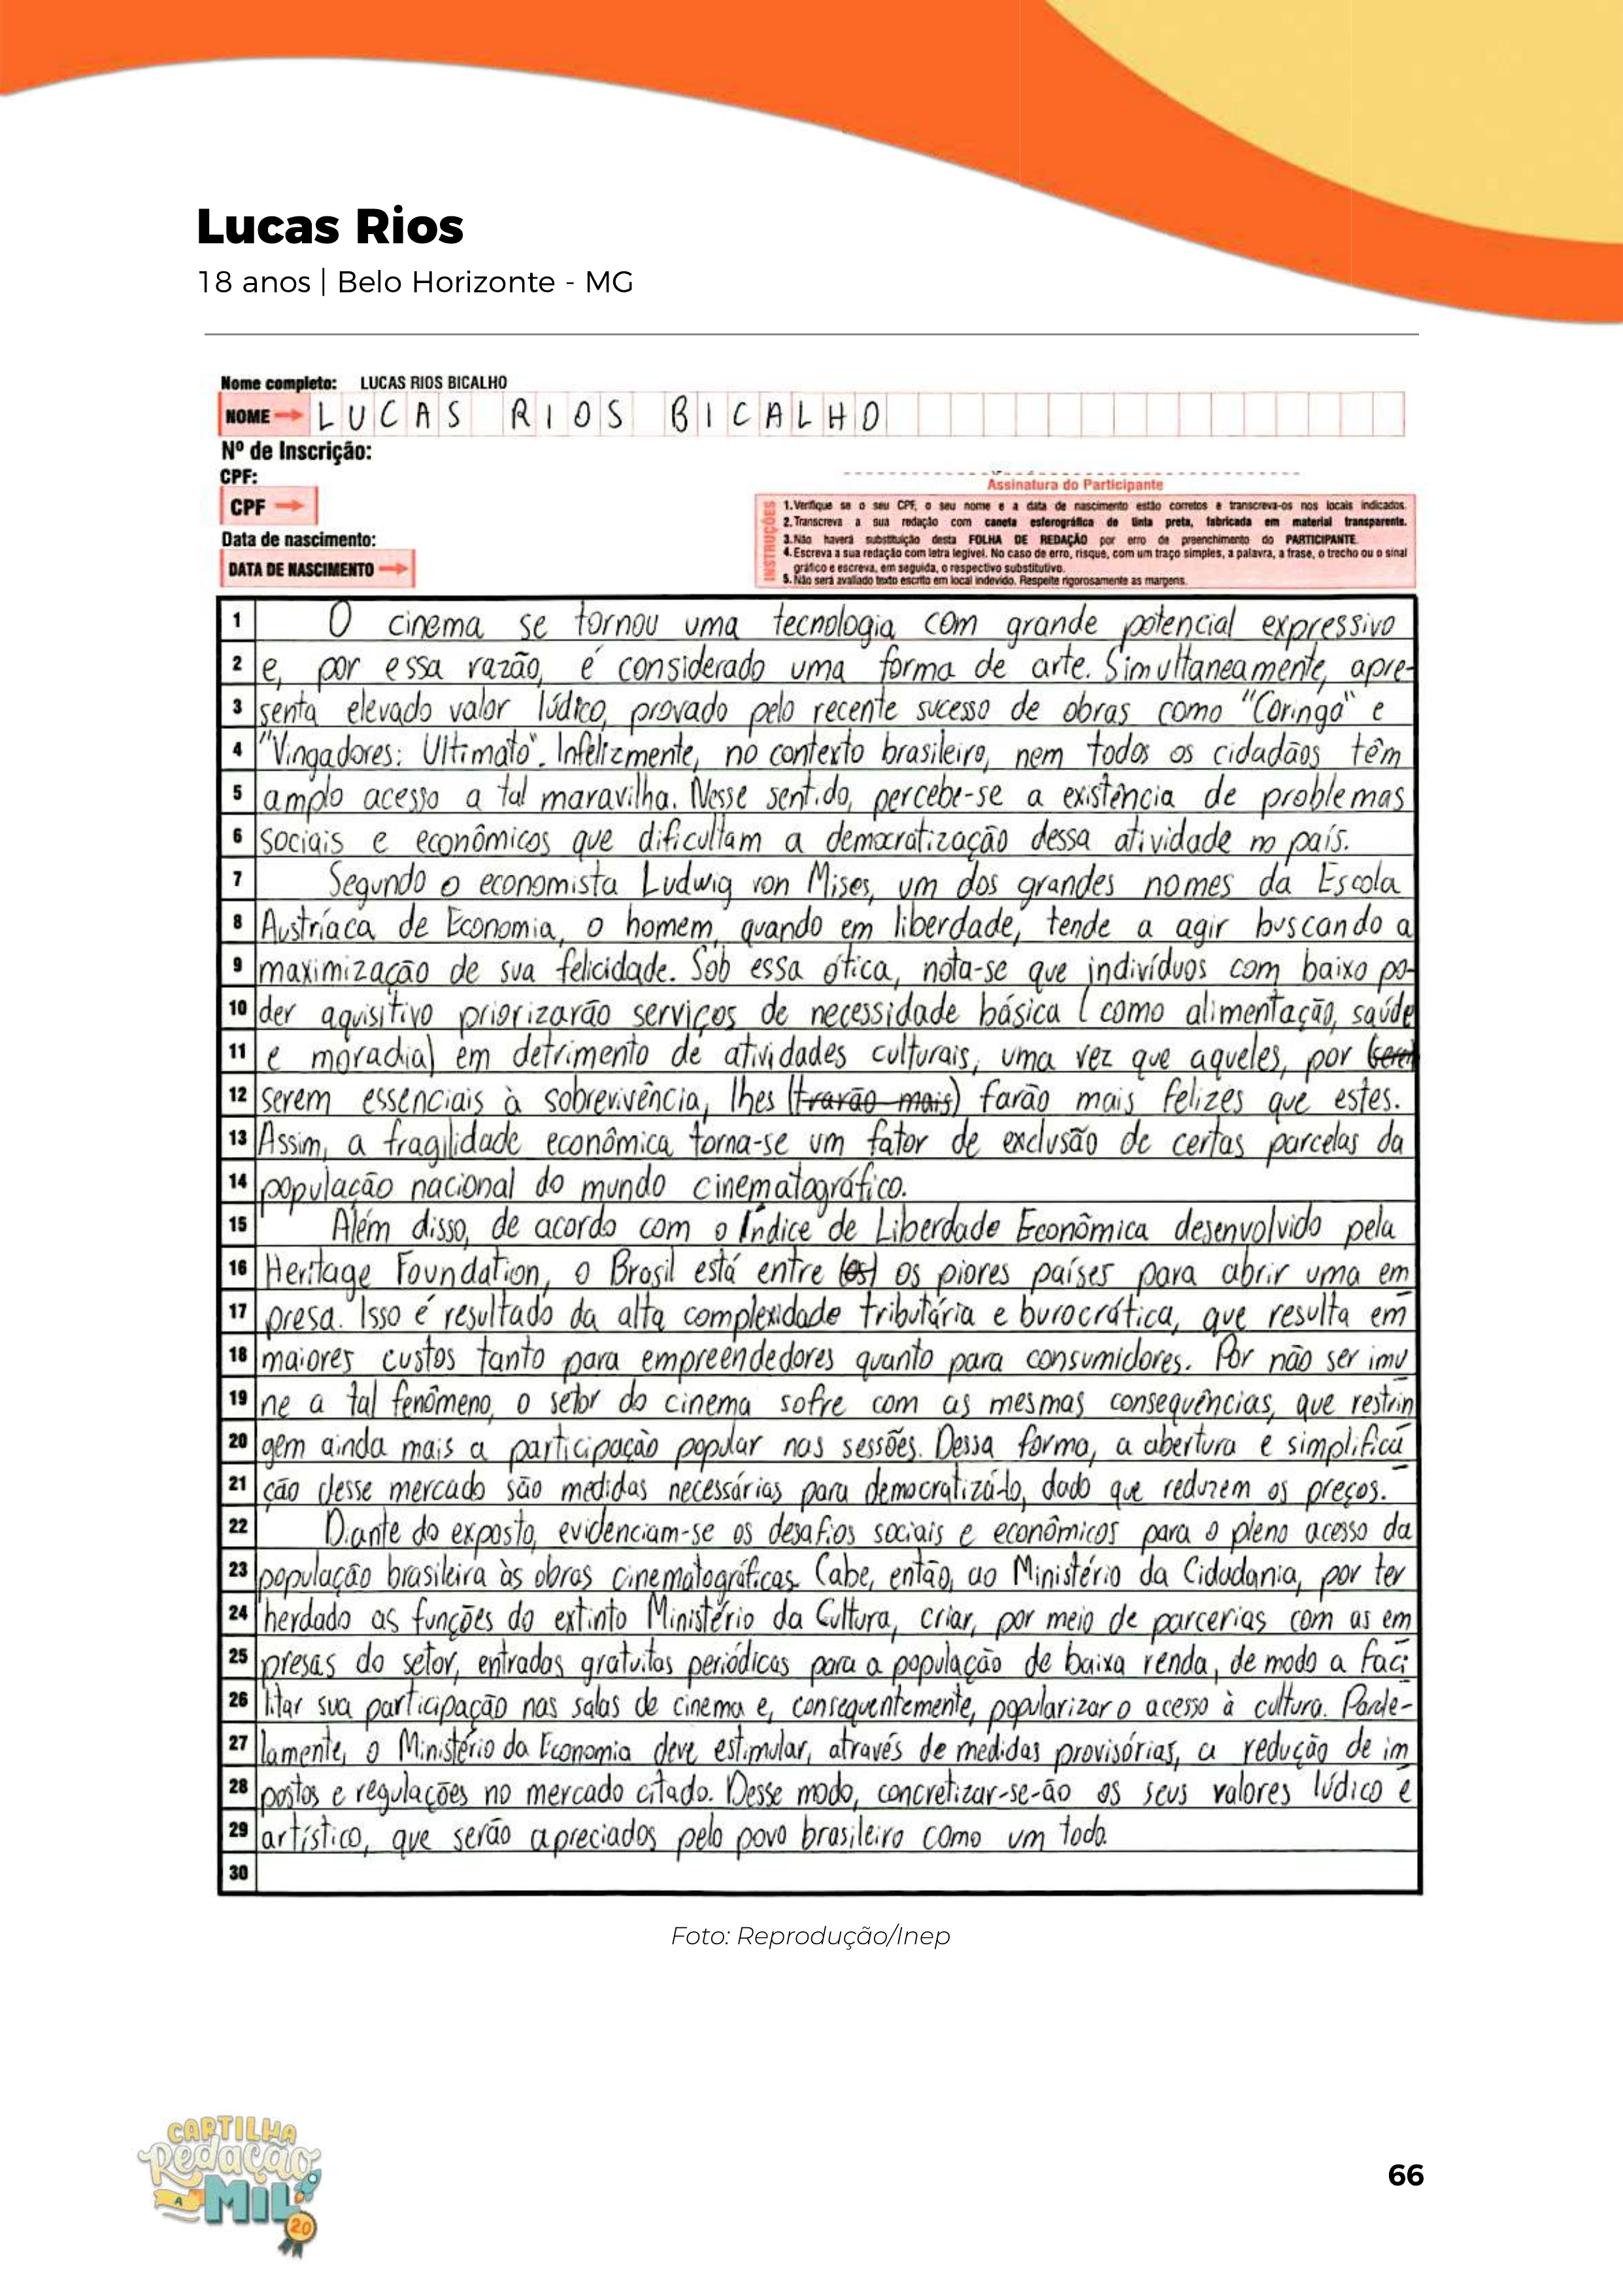 Lucas Rios
18 anos | Belo Horizonte - MG
Nome completo: LUCAS RIOS BICALHO
NOME LUCAS RIOS BICALHO
Nº de Inscrição:
CPF:
CPF
Data de nascimento:
DATA DE NASCIMENTO
Assinatura do Participante
INSTRUÇÕES
1. Verifique se o seu CPF, o seu nome e a data de nascimento estão corretos e transcreva-os nos locais indicados.
2. Transcreva a sua redação com caneta esferográfica de tinta preta, fabricada em material transparente.
3. Não haverá substituição desta FOLHA DE REDAÇÃO por erro de preenchimento do PARTICIPANTE.
4. Escreva a sua redação com letra legível. No caso de erro, risque, com um traço simples, a palavra, a frase, o trecho ou o sinal
gráfico e escreva, em seguida, o respectivo substitutivo.
5. Não será avaliado texto escrito em local indevido. Respeite rigorosamente as margens.
1 O cinema se tornou uma tecnologia com grande potencial expressivo
2 e, por essa razão, é considerado uma forma de arte. Simultaneamente, apre-
3 senta elevado valor lúdico, provado pelo recente sucesso de obras como "Coringa" e
4 "Vingadores: Ultimato". Infelizmente, no contexto brasileiro, nem todos os cidadãos têm
5 amplo acesso a tal maravilha. Nesse sentido, percebe-se a existência de problemas
6 sociais e econômicos que dificultam a democratização dessa atividade no país.
7 Segundo o economista Ludwig von Mises, um dos grandes nomes da Escola
8 Austríaca de Economia, o homem, quando em liberdade, tende a agir buscando a
9 maximização de sua felicidade. Sob essa ótica, nota-se que indivíduos com baixo po-
10 der aquisitivo priorizarão serviços de necessidade básica (como alimentação, saúde
11 e moradia) em detrimento de atividades culturais, uma vez que aqueles, por
12 serem essenciais à sobrevivência, lhes (trarão mais) farão mais felizes que estes.
13 Assim, a fragilidade econômica torna-se um fator de exclusão de certas parcelas da
14 população nacional do mundo cinematográfico.
15 Além disso, de acordo com o Índice de Liberdade Econômica desenvolvido pela
16 Heritage Foundation, o Brasil está entre (os) os piores países para abrir uma em
17 presa. Isso é resultado da alta complexidade tributária e burocrática, que resulta em
18 maiores custos tanto para empreendedores quanto para consumidores. Por não ser imu
19 ne a tal fenômeno, o setor do cinema sofre com as mesmas consequências, que restrin
20 gem ainda mais a participação popular nas sessões. Dessa forma, a abertura e simplifica
21 ção desse mercado são medidas necessárias para democratizá-lo, dado que reduzem os preços.
22 Diante do exposto, evidenciam-se os desafios sociais e econômicos para o pleno acesso da
23 população brasileira às obras cinematográficas. Cabe, então, ao Ministério da Cidadania, por ter
24 herdado as funções do extinto Ministério da Cultura, criar, por meio de parcerias com as em
25 presas do setor, entradas gratuitas periódicas para a população de baixa renda, de modo a faci
26 litar sua participação nas salas de cinema e, consequentemente, popularizar o acesso à cultura. Parale-
27 lamente, o Ministério da Economia deve estimular, através de medidas provisórias, a redução de im
28 postos e regulações no mercado citado. Desse modo, concretizar-se-ão os seus valores lúdico e
29 artístico, que serão apreciados pelo povo brasileiro como um todo.
30
Foto: Reprodução/Inep
CARTILHA
Redação
A MIL
2.0
66